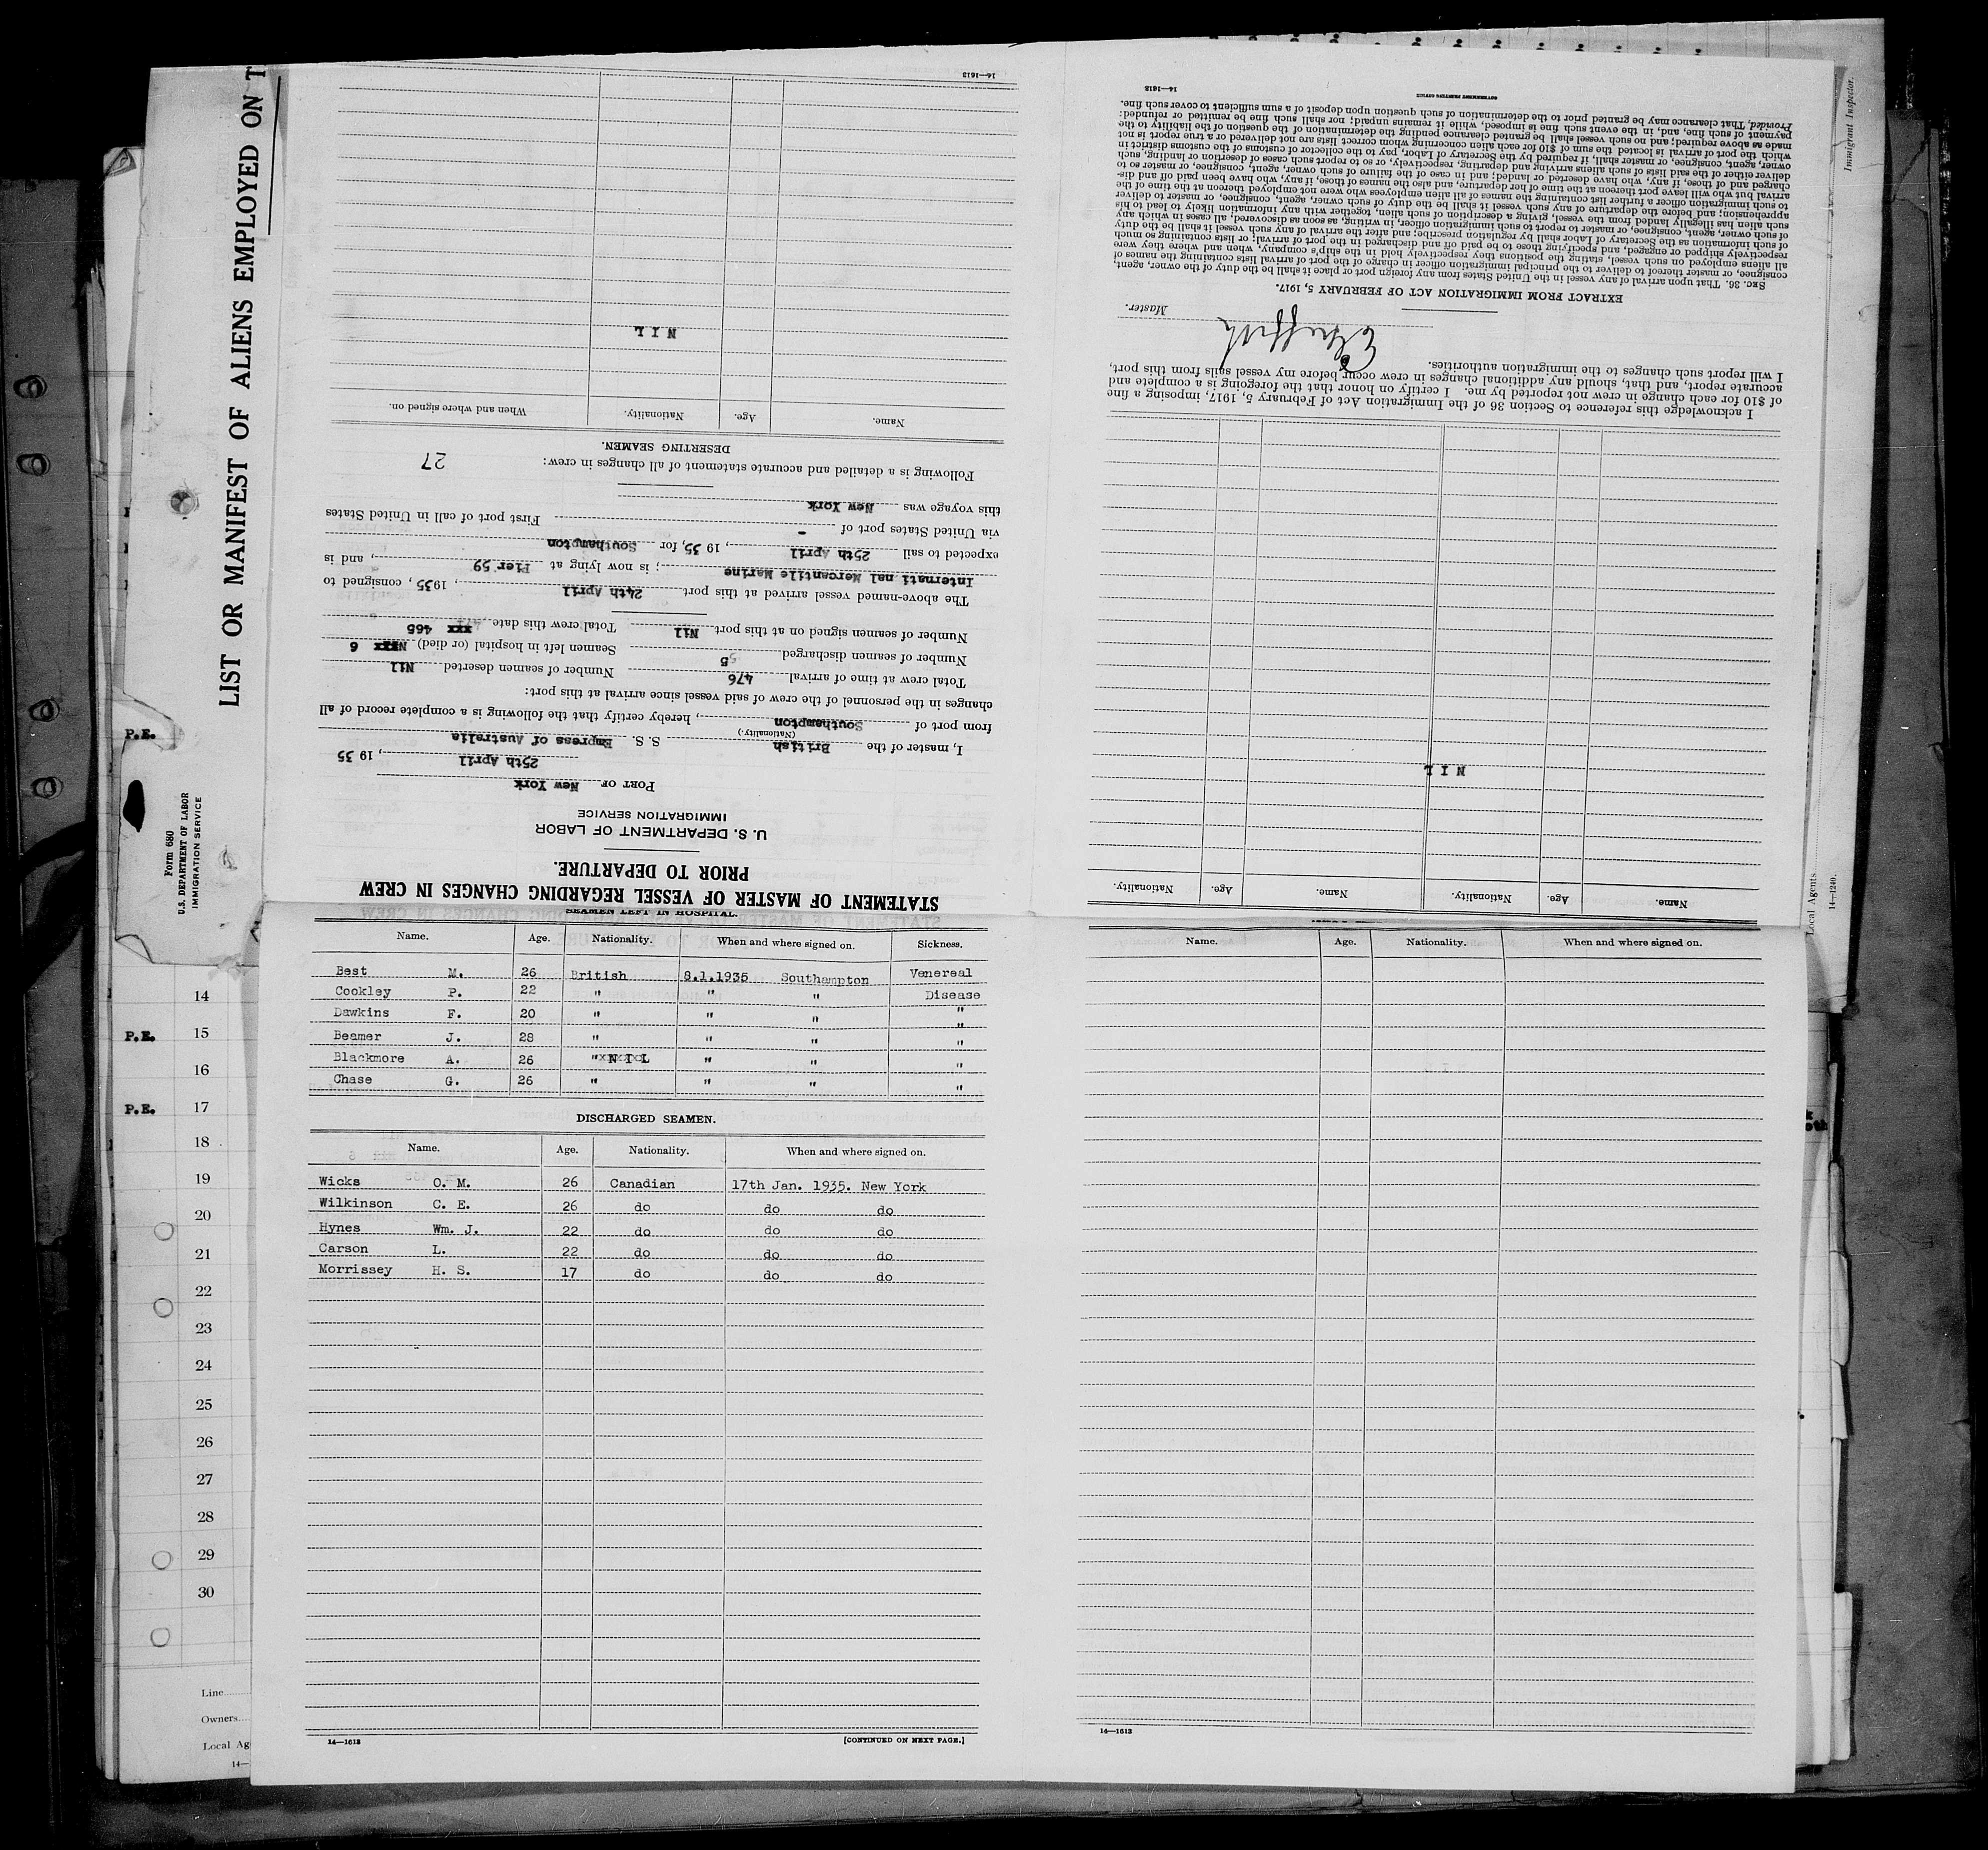 LIST OR MANIFEST OF ALIENS EMPLOYED ON T
Form 680
U.S. DEPARTMENT OF LABOR
IMMIGRATION SERVICE
P.E.
14
P.E. 15
16
P.E. 17
18
19
20
21
22
23
24
25
26
27
28
29
30
Line
Owners
Local Ag
14—
STATEMENT OF MASTER OF VESSEL REGARDING CHANGES IN CREW
PRIOR TO DEPARTURE.
U. S. DEPARTMENT OF LABOR
IMMIGRATION SERVICE
PORT OF New York
25th April, 19 35
I, master of the British S. S. Empress of Australia
(Nationality.)
from port of Southampton, hereby certify that the following is a complete record of all
changes in the personnel of the crew of said vessel since arrival at this port:
Total crew at time of arrival 476 Number of seamen deserted Nil
Number of seamen discharged 5 Seamen left in hospital (or died) 6
Number of seamen signed on at this port Nil Total crew this date xxx 465
The above-named vessel arrived at this port 24th April, 1935, consigned to
Internati nal Mercantile Marine; is now lying at Pier 59, and is
expected to sail 25th April, 19 35, for Southampton
via United States port of - First port of call in United States
this voyage was New York
Following is a detailed and accurate statement of all changes in crew: 27
DESERTING SEAMEN.
Name. Age. Nationality. When and where signed on.
N I L
14—1613
SEAMEN LEFT IN HOSPITAL.
Name. Age. Nationality. When and where signed on. Sickness.
Best M. 26 British 8.1.1935 Southampton Venereal
Cookley P. 22 " " " Disease
Dawkins F. 20 " " " "
Beamer J. 28 " " " "
Blackmore A. 26 " N I L " " "
Chase G. 26 " " " "
DISCHARGED SEAMEN.
Name. Age. Nationality. When and where signed on.
Wicks O. M. 26 Canadian 17th Jan. 1935. New York
Wilkinson C. E. 26 do do do
Hynes Wm. J. 22 do do do
Carson L. 22 do do do
Morrissey H. S. 17 do do do
14—1613 [CONTINUED ON NEXT PAGE.]
Name. Age. Nationality. When and where signed on.
14—1613
Name. Age. Nationality. Name. Age. Nationality.
N I L
I acknowledge this reference to Section 36 of the Immigration Act of February 5, 1917, imposing a fine
of $10 for each change in crew not reported by me. I certify on honor that the foregoing is a complete and
accurate report, and that, should any additional changes in crew occur before my vessel sails from this port,
I will report such changes to the immigration authorities.
Master.
EXTRACT FROM IMMIGRATION ACT OF FEBRUARY 5, 1917.
SEC. 36. That upon arrival of any vessel in the United States from any foreign port or place it shall be the duty of the owner, agent,
consignee, or master thereof to deliver to the principal immigration officer in charge of the port of arrival lists containing the names of
all aliens employed on such vessel, stating the positions they respectively hold in the ship's company, when and where they were
respectively shipped or engaged, and specifying those to be paid off and discharged in the port of arrival; or lists containing so much
of such information as the Secretary of Labor shall by regulation prescribe; and after the arrival of any such vessel it shall be the duty
of such owner, agent, consignee, or master to report to such immigration officer, in writing, as soon as discovered, all cases in which any
such alien has illegally landed from the vessel, giving a description of such alien, together with any information likely to lead to his
apprehension; and before the departure of any such vessel it shall be the duty of such owner, agent, consignee, or master to deliver
to such immigration officer a further list containing the names of all alien employees who were not employed thereon at the time of the
arrival but who will leave port thereon at the time of her departure, and also the names of those, if any, who have been paid off and dis-
charged and of those, if any, who have deserted or landed; and in case of the failure of such owner, agent, consignee, or master so to
deliver either of the said lists of such aliens arriving and departing, respectively, or so to report such cases of desertion or landing, such
owner, agent, consignee, or master shall, if required by the Secretary of Labor, pay to the collector of customs of the customs district in
which the port of arrival is located the sum of $10 for each alien concerning whom correct lists are not delivered or a true report is not
made as above required; and no such vessel shall be granted clearance pending the determination of the question of the liability to the
payment of such fine, and, in the event such fine is imposed, while it remains unpaid; nor shall such fine be remitted or refunded:
Provided, That clearance may be granted prior to the determination of such question upon deposit of a sum sufficient to cover such fine.
GOVERNMENT PRINTING OFFICE
14—1613
Immigrant Inspector.
Local Agents
14—1240.